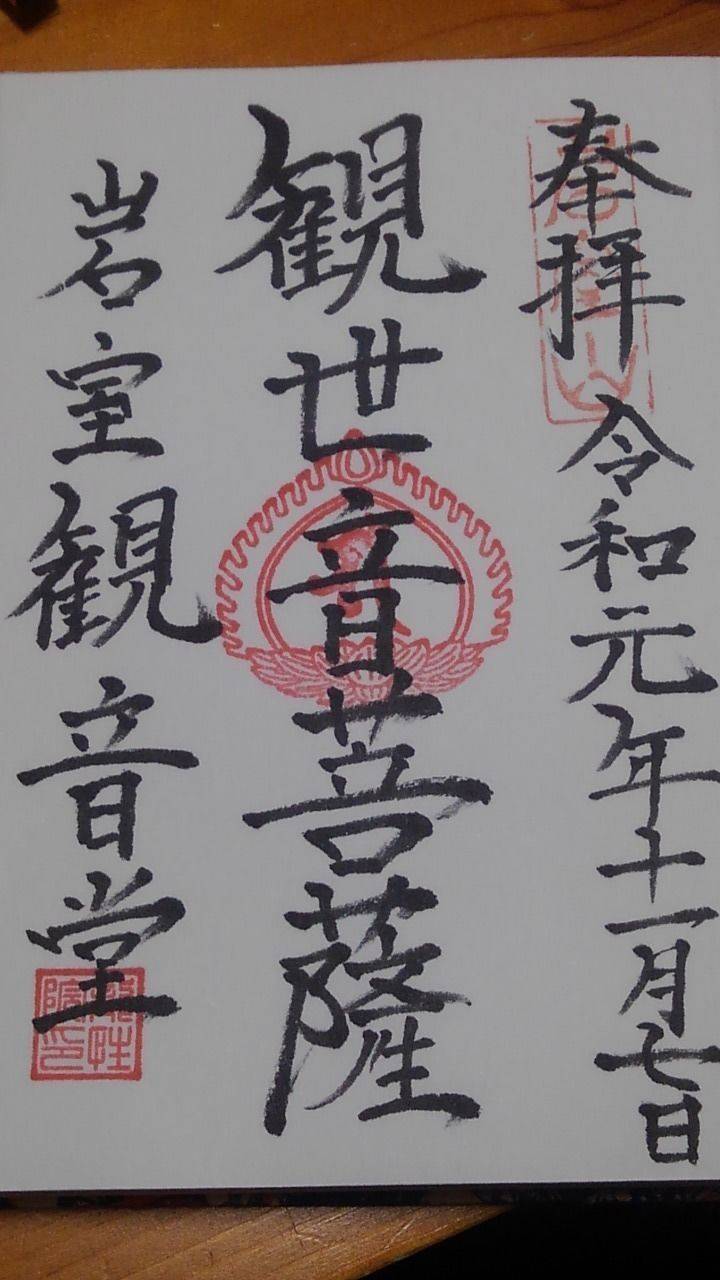 奉拝 令和元年十一月七日
観世音菩薩
岩室観音堂